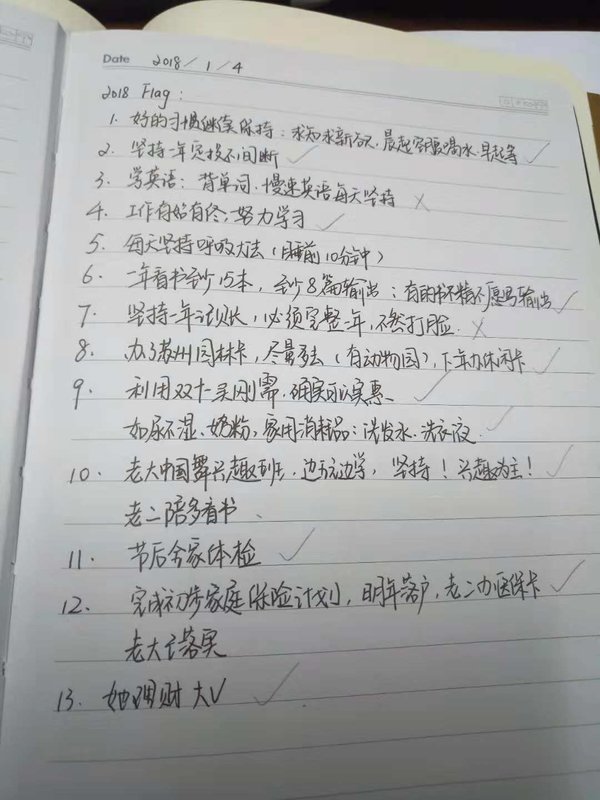 Date 2018/1/4
2018 Flag:
1. 好的习惯继续保持:求知求新,晨起空腹喝水.早起等
2. 坚持一年定投不间断
3. 学英语:背单词.慢速英语每天坚持
4. 工作有始有终,努力学习
5. 每天坚持呼吸大法(睡前10分钟)
6. 一年看书至少15本,至少8篇输出;有的书不精不愿写输出
7. 坚持一年记账,必须完整一年,不然打脸.
8. 办了苏州园林卡,尽量多去(有动物园),下年办休闲卡
9. 利用双十一买刚需,确实可以实惠、
如尿不湿、奶粉、家用消耗品:洗发水.洗衣液.
10. 老大中国舞兴趣班,边玩边学,坚持!兴趣为主!
老二陪多看书.
11. 节后全家体检
12. 完成初步家庭保险计划,明年落户,老二办医保卡
老大已落实
13. 她理财大V